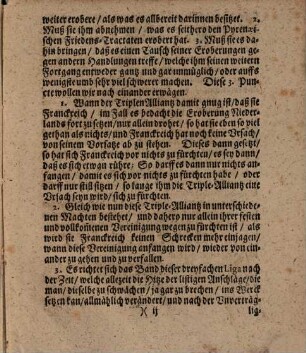 weiter erobere / als was es allbereit darinnen besitzet. 2.
Muß sie ihm abnehmen / was es seithero den Pyrenai-
schen Friedens-Tractaten erobert hat. 3. Muß sies da-
hin bringen / daß es einen Tausch seiner Eroberungen ge-
gen andern Handlungen treffe / welche ihm seinen weitern
Fortgang entweder gantz und gar unmüglich / oder auffs
wenigste und sehr viel schwerer machen. Diese 3. Pun-
cte wollen wir nach einander erwägen.
1. Wann der Triplen Alliantz damit gnug ist / daß sie
Franckreich / im Fall es bedacht die Eroberung Nieder-
lands fort zu setzen / nur allein drohet / so hat sie eben so viel
gethan als nichts / und Franckreich hat noch keine Ursach /
von seinem Vorsatz ab zu stehen. Dieses dann gesetzt /
so hat sich Franckreich vor nichts zu fürchten / es sey dann /
daß es sich etwan rühre: So darff es dann nur nichts an-
fangen / damit es sich vor nichts zu fürchten habe / oder
darff nur still stehen / so lange ihm die Triple-Alliantz eine
Ursach seyn wird / sich zu fürchten.
2. Gleich wie nun diese Triple-Alliantz in unterschiede-
nen Machten bestehet / und dahero nur allein ihrer festen
und vollkommenen Vereinigung wegen zu fürchten ist / als
wird sie Franckreich keinen Schrecken mehr einjagen /
wann diese Vereinigung anfangen wird / wieder von ein-
ander zu gehen und zu verfallen.
3. Es richtet sich das Band dieser dreyfachen Liga nach
der Zeit / welche allezeit die Hitze der listigen Anschläge / die
man / dieselbe zu schwächen / ja gar zu brechen / ins Werck
setzen kan / allmählich verändert / und nach der Unverträg-
)( ij lig-